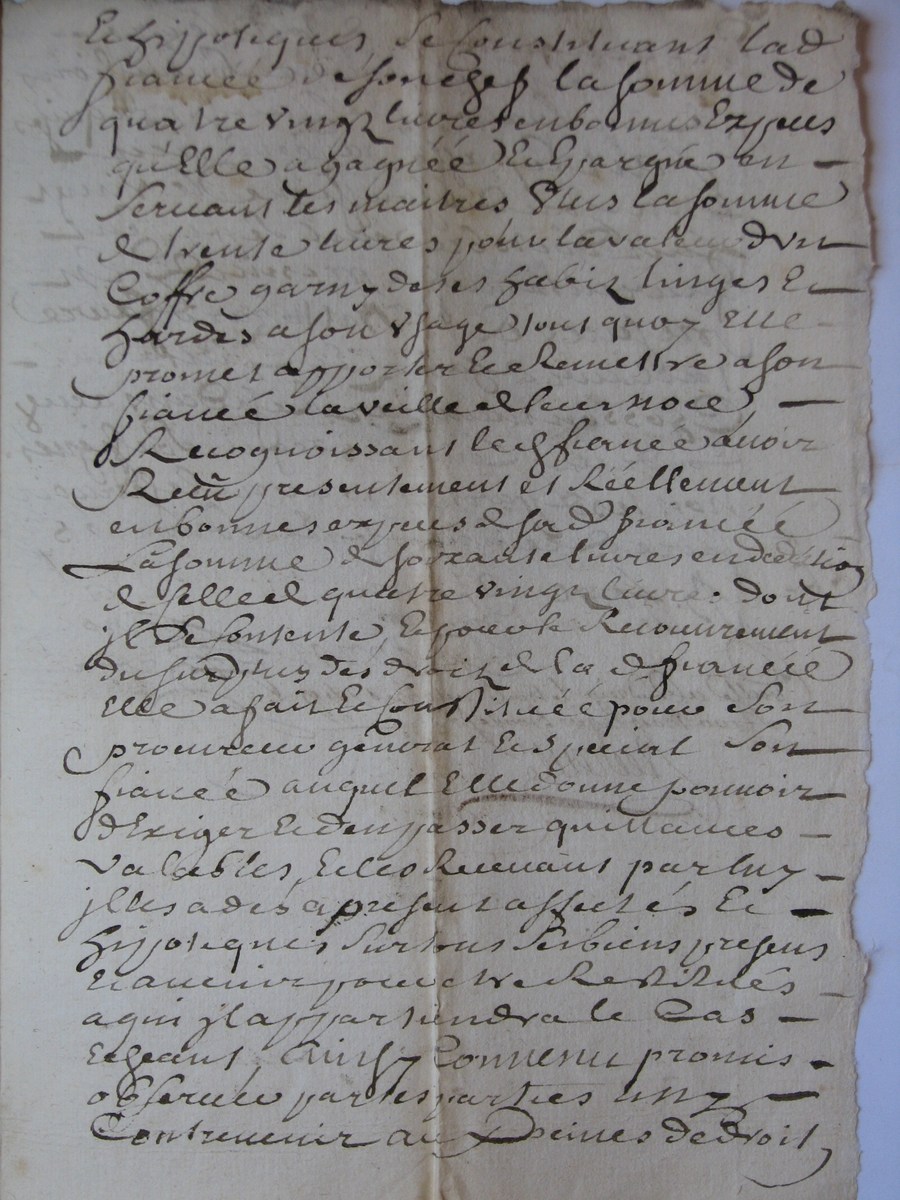 Et hippotequés se Constituant lad
fiancée de son chef la somme de
quatre vingz livres en bonnes Expeces
qu'Elle a gagnée Et Epargné en
Servant les maitres Plus la somme
de trente livres pour la valeur d'un
Coffre garny de ses habiz linges Et
hardes a son Usage tout quoy Elle
promet apporter Et Remettre a son
fiancé la veille de leur noce,
Recognoissant led fiancé avoir
Receu presentement et Réellement
en bonnes expeces de sad fiancée
La somme de soixante livres en deduction
de selle de quatre vingz livres. dont
jl Se Contente, Et pour le Recouvrement
du surplus des droiz de la d fiancée
Elle a fait Et Constitué pour Son
procureur général Et Special Son
fiancé auquel Elle donne pouvoir
d'Exiger Et d'en passer quittances
valables, Et les Recevant par luy
jl les a dés a present affectés Et
hippotequés Sur tous Ses biens presens
Et a venir pour etre Restitués
a qui jl appartiendra le Cas
Echeant, Ainsy Convenu promis
observer par les parties n'y
Contrevenir aux Peines de droit